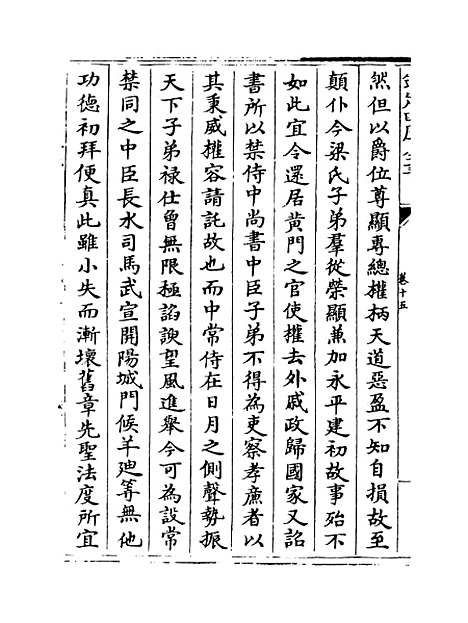 欽定四庫全書
卷十五
然但以爵位尊顯專總權柄天道惡盈不知自損故至
顛仆今梁氏子弟羣從榮顯兼加永平建初故事殆不
如此宜令還居黄門之官使權去外戚政歸國家又詔
書所以禁侍中尚書中臣子弟不得為吏察孝亷者以
其秉威權容請託故也而中常侍在日月之側聲勢振
天下子弟禄仕曾無限極諂諛望風進舉今可為設常
禁同之中臣長水司馬武宣開陽城門候羊廸等無他
功徳初拜便真此雖小失而漸壞舊章先聖法度所宜